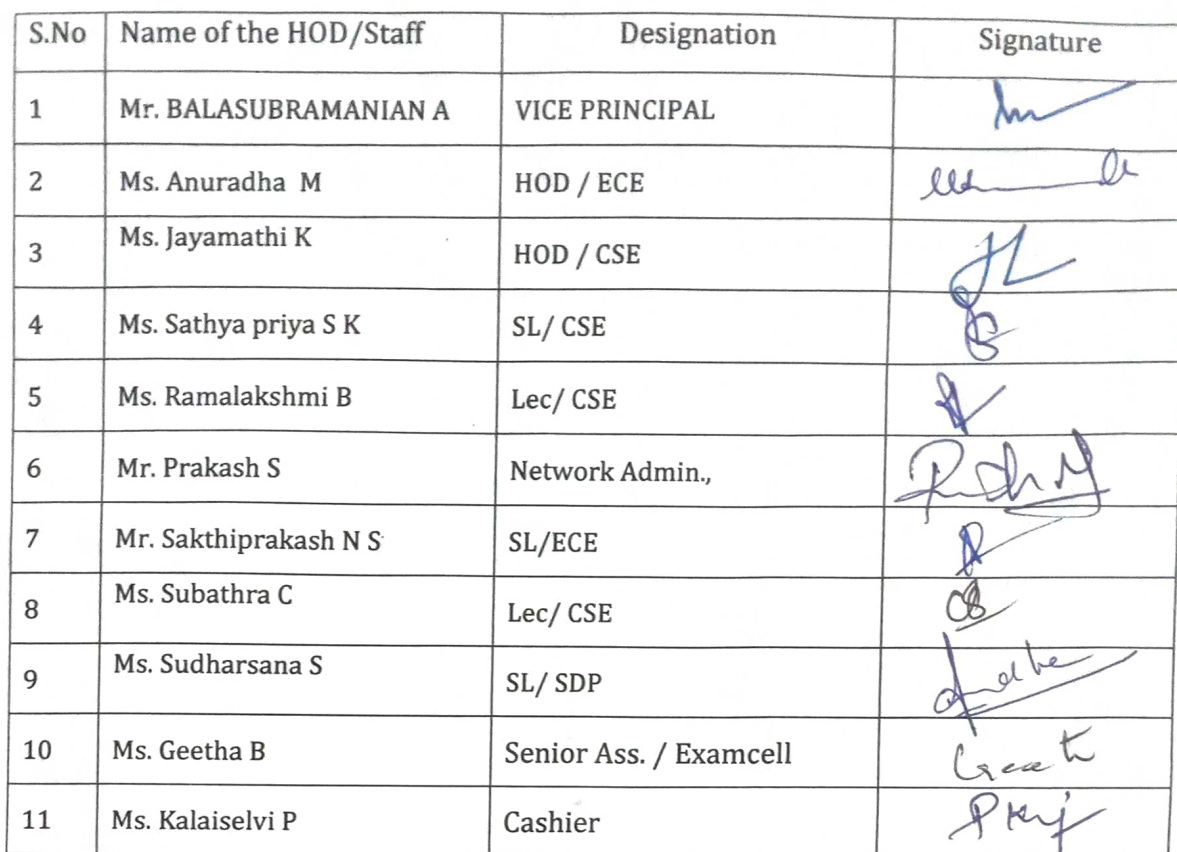 S.No Name of the HOD/Staff Designation Signature
1 Mr. BALASUBRAMANIAN A VICE PRINCIPAL
2 Ms. Anuradha M HOD / ECE
3 Ms. Jayamathi K HOD / CSE
4 Ms. Sathya priya S K SL/ CSE
5 Ms. Ramalakshmi B Lec/ CSE
6 Mr. Prakash S Network Admin.,
7 Mr. Sakthiprakash N S SL/ECE
8 Ms. Subathra C Lec/ CSE
9 Ms. Sudharsana S SL/ SDP
10 Ms. Geetha B Senior Ass. / Examcell
11 Ms. Kalaiselvi P Cashier